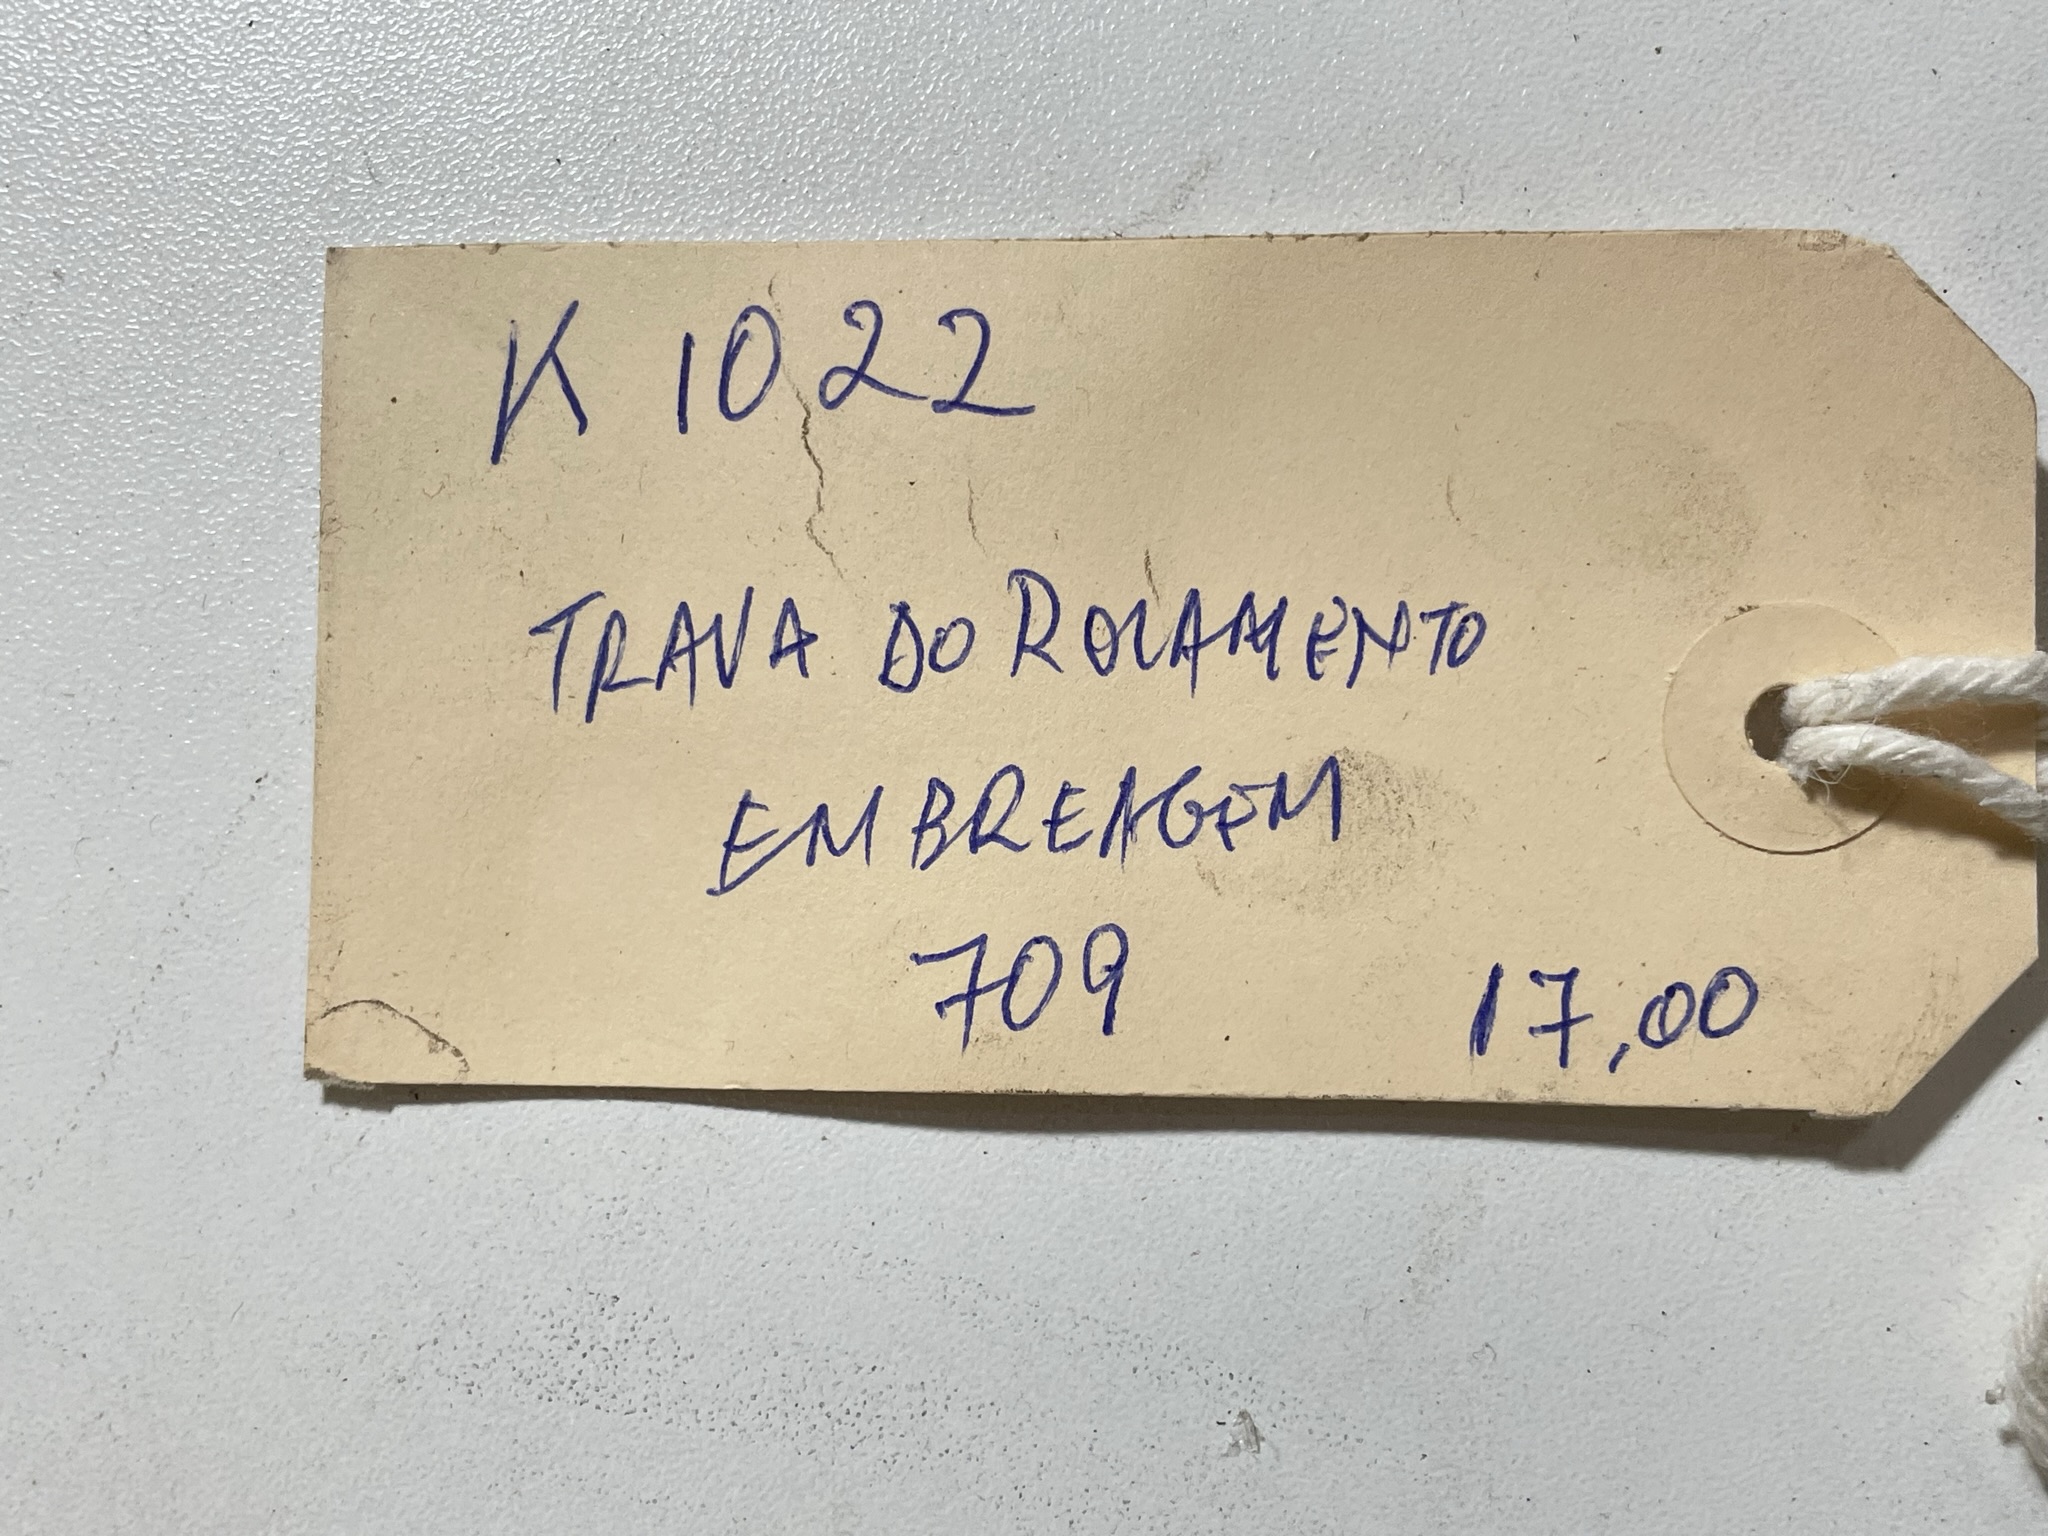 K 1022
TRAVA DO ROLAMENTO
EMBREAGEM
709 17,00